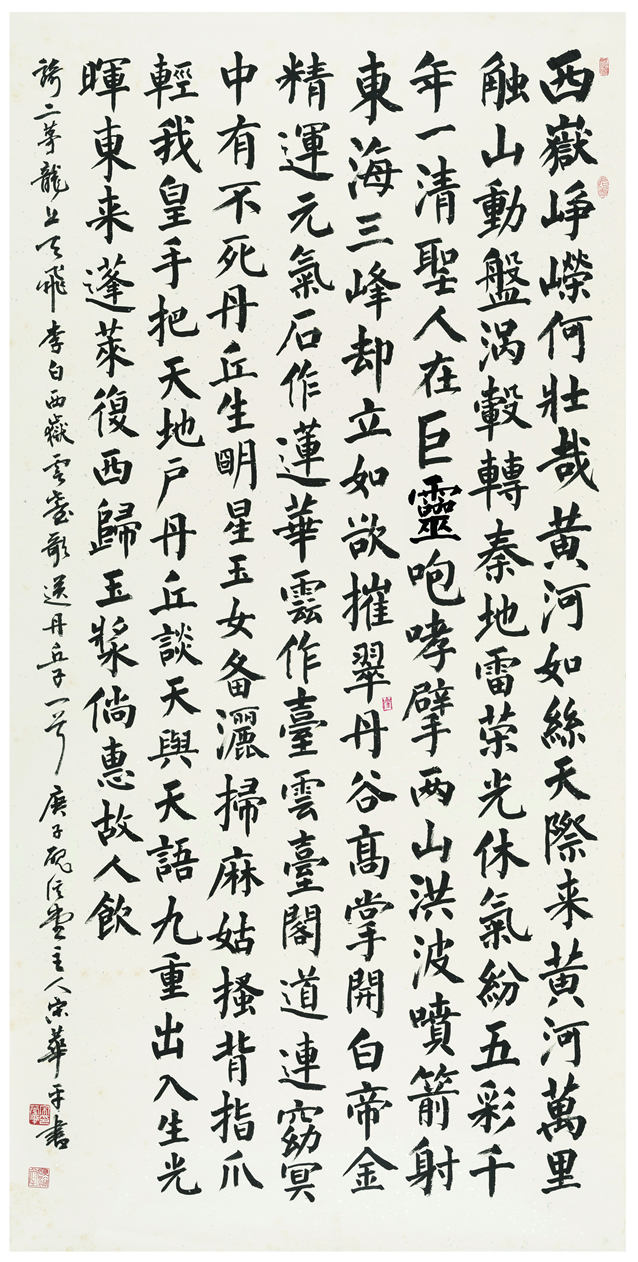 西嶽崢嶸何壯哉黄河如絲天際来黄河萬里
触山動盤渦轂轉秦地雷荣光休氣紛五彩千
年一清聖人在巨靈咆哮擘两山洪波噴箭射
東海三峰却立如欲摧翠丹谷高掌開白帝金
精運元氣石作蓮華雲作臺雲臺閣道連窈冥
中有不死丹丘生明星玉女备灑掃麻姑搔背指爪
輕我皇手把天地户丹丘談天與天語九重出入生光
暉東来蓬萊復西歸玉漿倘惠故人飲
騎二茅龍上天飛李白西嶽雲臺歌送丹丘子一首庚子主人宋華平書